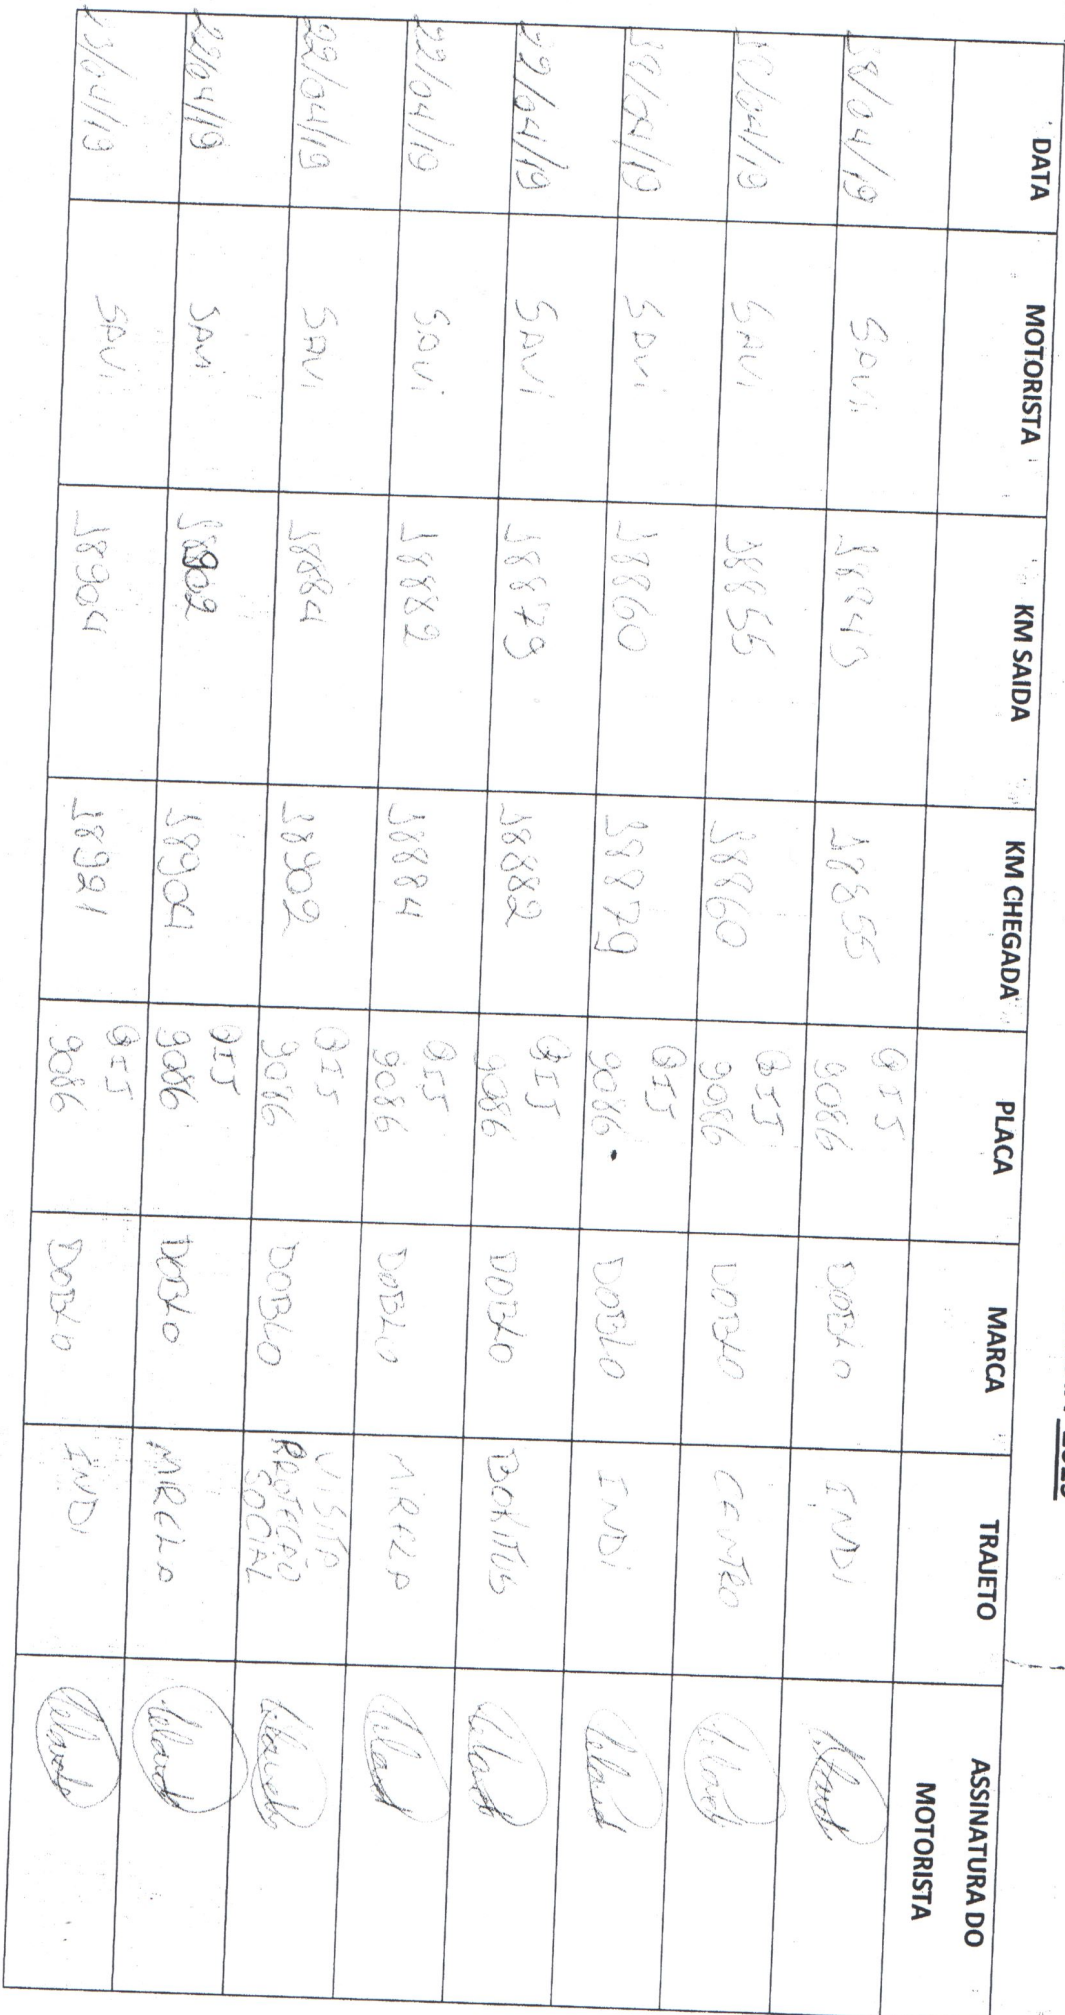 DATA MOTORISTA KM SAIDA KM CHEGADA PLACA MARCA TRAJETO ASSINATURA DO MOTORISTA
18/04/19 SAVI 18849 18855 QIJ 9086 DOBLO INDI
18/04/19 SAVI 18855 18860 QIJ 9086 DOBLO CENTRO
18/04/19 SAVI 18860 18879 QIJ 9086 DOBLO INDI
22/04/19 SAVI 18879 18882 QIJ 9086 DOBLO
22/04/19 SAVI 18882 18884 QIJ 9086 DOBLO MIRELA
22/04/19 SAVI 18884 18902 QIJ 9086 DOBLO VISITA PROTEÇÃO SOCIAL
22/04/19 SAVI 18902 18904 QIJ 9086 DOBLO MIRELA
23/04/19 SAVI 18904 18921 QIJ 9086 DOBLO INDI